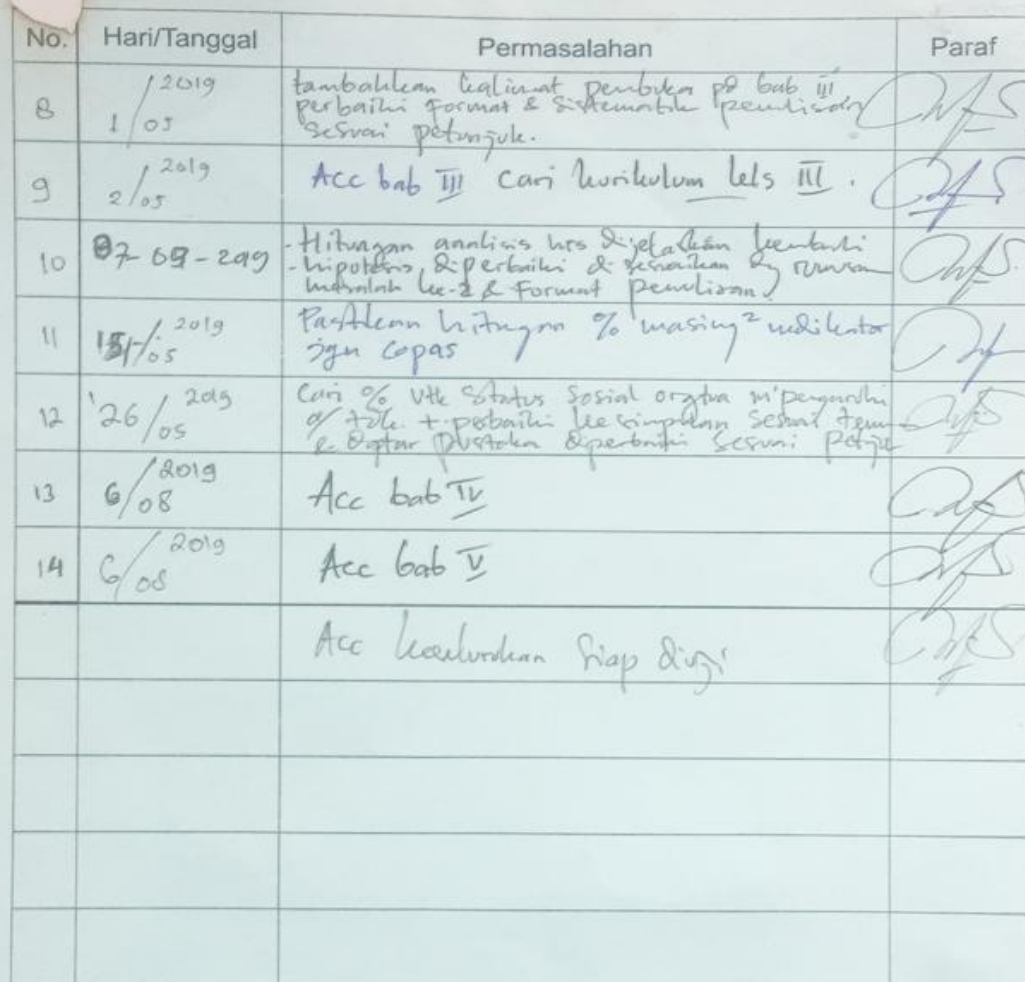 No. Hari/Tanggal Permasalahan Paraf
8 1/05 2019 tambahkan kalimat pembuka pd bab III
perbaiki format & sistematik penulisan
sesuai petunjuk.
9 2/05 2019 Acc bab III Cari kurikulum kls III.
10 -2019 - Hitungan analisis hrs dijelaskan kembali
- hipotesis diperbaiki & sesuaikan dg rumusan
masalah ke-2 & Format penulisan
11 /05 2019 Pastikan hitungan % masing² indikator
jgn copas
12 26/05 2019 Cari % utk Status Sosial orgtua m'pengaruhi
+ perbaiki kesimpulan sesuai
& Daftar Pustaka diperbaiki sesuai
13 6/08 2019 Acc bab IV
14 6/08 2019 Acc bab V
Acc keseluruhan Siap diuji